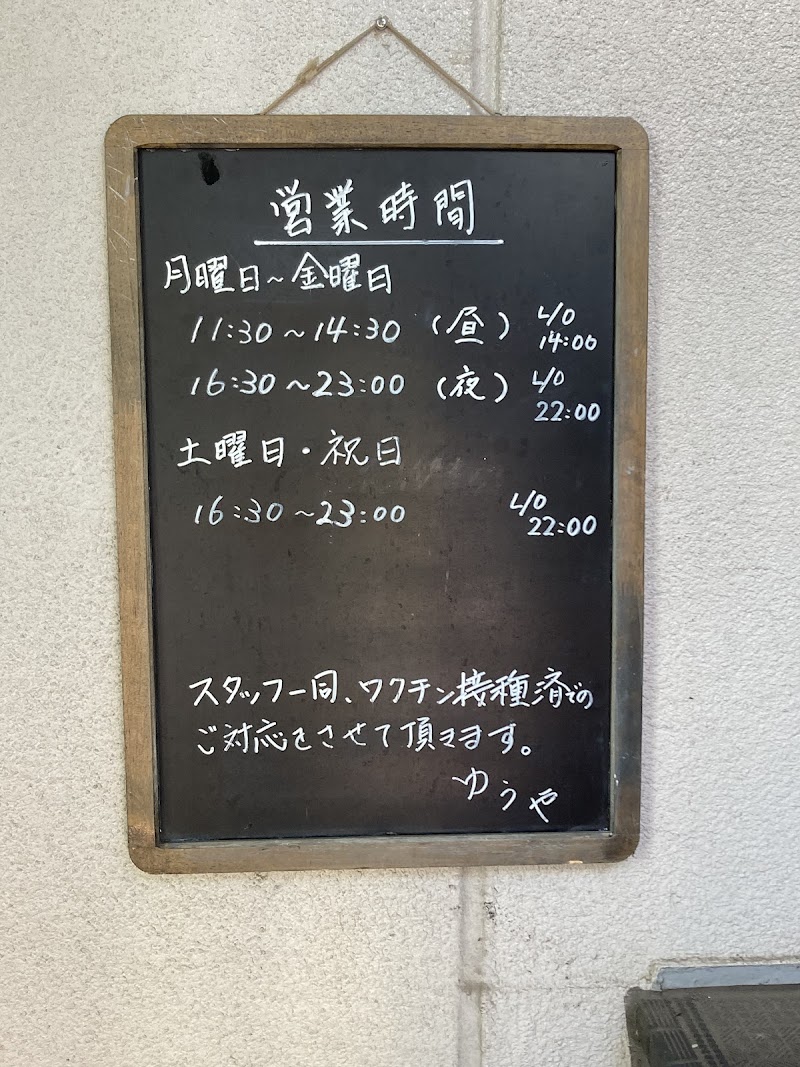 営業時間
月曜日~金曜日
11:30~14:30 (昼) L/O 14:00
16:30~23:00 (夜) L/O 22:00
土曜日・祝日
16:30~23:00 L/O 22:00
スタッフ一同、ワクチン接種済での
ご対応をさせて頂きます。
ゆうや